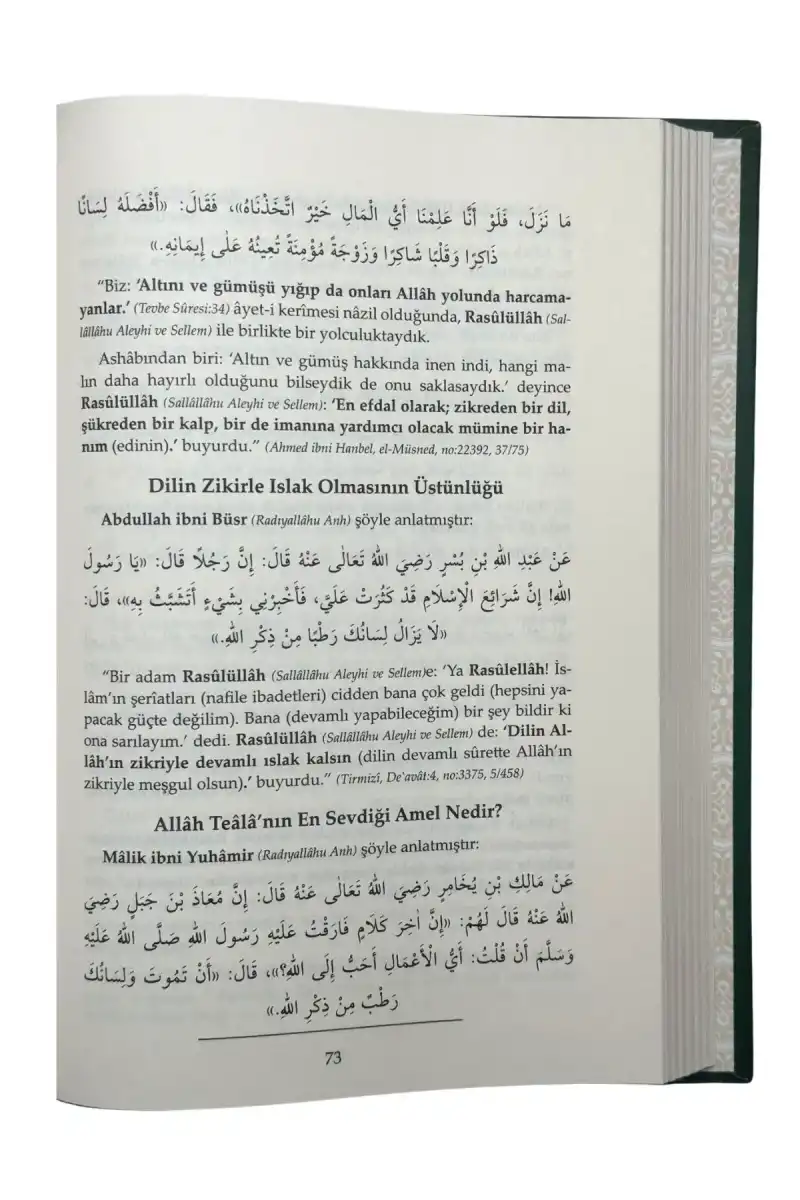 مَا نَزَلَ، فَلَوْ أَنَّا عَلِمْنَا أَيُّ الْمَالِ خَيْرٌ اتَّخَذْنَاهُ»، فَقَالَ: «أَفْضَلُهُ لِسَانًا
ذَاكِرًا وَقَلْبًا شَاكِرًا وَزَوْجَةً مُؤْمِنَةً تُعِينُهُ عَلٰى إِيمَانِهِ.»
“Biz: ‘Altını ve gümüşü yığıp da onları Allâh yolunda harcama-
yanlar.’ (Tevbe Sûresi:34) âyet-i kerîmesi nâzil olduğunda, Rasûlüllâh (Sal-
lâllâhu Aleyhi ve Sellem) ile birlikte bir yolculuktaydık.
Ashâbından biri: ‘Altın ve gümüş hakkında inen indi, hangi ma-
lın daha hayırlı olduğunu bilseydik de onu saklasaydık.’ deyince
Rasûlüllâh (Sallâllâhu Aleyhi ve Sellem): ‘En efdal olarak; zikreden bir dil,
şükreden bir kalp, bir de imanına yardımcı olacak mümine bir ha-
nım (edinin).’ buyurdu.” (Ahmed ibni Hanbel, el-Müsned, no:22392, 37/75)
Dilin Zikirle Islak Olmasının Üstünlüğü
Abdullah ibni Büsr (Radıyallâhu Anh) şöyle anlatmıştır:
عَنْ عَبْدِ اللهِ بْنِ بُسْرٍ رَضِيَ اللهُ تَعَالٰى عَنْهُ قَالَ: إِنَّ رَجُلًا قَالَ: «يَا رَسُولَ
اللهِ! إِنَّ شَرَائِعَ الْإِسْلَامِ قَدْ كَثُرَتْ عَلَيَّ، فَأَخْبِرْنِي بِشَيْءٍ أَتَشَبَّثُ بِهِ»، قَالَ:
«لَا يَزَالُ لِسَانُكَ رَطْبًا مِنْ ذِكْرِ اللهِ.»
“Bir adam Rasûlüllâh (Sallâllâhu Aleyhi ve Sellem)e: ‘Ya Rasûlellâh! İs-
lâm’ın şerîatları (nafile ibadetleri) cidden bana çok geldi (hepsini ya-
pacak güçte değilim). Bana (devamlı yapabileceğim) bir şey bildir ki
ona sarılayım.’ dedi. Rasûlüllâh (Sallâllâhu Aleyhi ve Sellem) de: ‘Dilin Al-
lâh’ın zikriyle devamlı ıslak kalsın (dilin devamlı sûrette Allâh’ın
zikriyle meşgul olsun).’ buyurdu.” (Tirmizî, De`avât:4, no:3375, 5/458)
Allâh Teâlâ’nın En Sevdiği Amel Nedir?
Mâlik ibni Yuhâmir (Radıyallâhu Anh) şöyle anlatmıştır:
عَنْ مَالِكِ بْنِ يُخَامِرٍ رَضِيَ اللهُ تَعَالٰى عَنْهُ قَالَ: إِنَّ مُعَاذَ بْنَ جَبَلٍ رَضِيَ
اللهُ عَنْهُ قَالَ لَهُمْ: «إِنَّ اٰخِرَ كَلَامٍ فَارَقْتُ عَلَيْهِ رَسُولَ اللهِ صَلَّى اللهُ عَلَيْهِ
وَسَلَّمَ أَنْ قُلْتُ: أَيُّ الْأَعْمَالِ أَحَبُّ إِلَى اللهِ؟»، قَالَ: «أَنْ تَمُوتَ وَلِسَانُكَ
رَطْبٌ مِنْ ذِكْرِ اللهِ.»
73